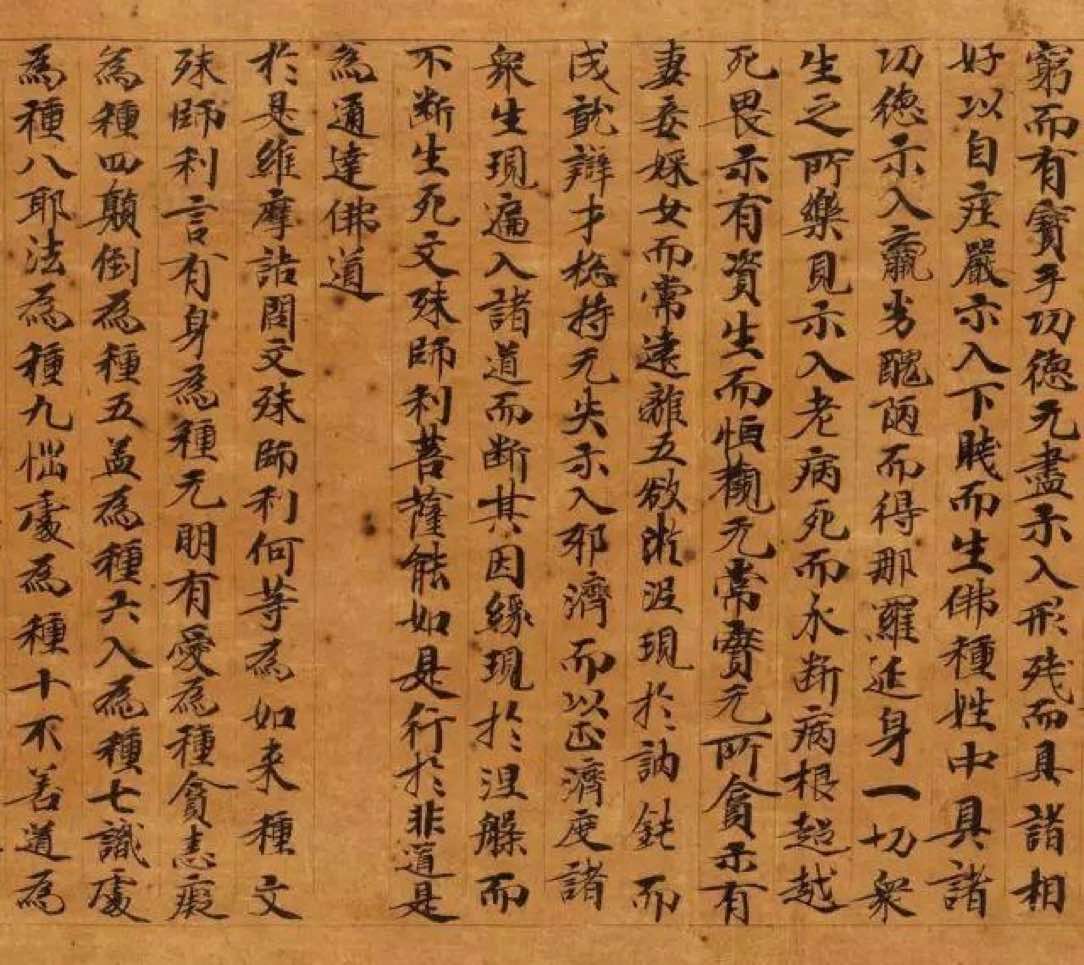 窮而有寶手功德无盡示入形残而具諸相
好以自莊嚴示入下賎而生佛種姓中具諸
功德示入羸劣醜陋而得那羅延身一切衆
生之所樂見示入老病死而永断病根超越
死畏示有資生而恒觀无常實无所貪示有
妻妾婇女而常遠離五欲淤泥現於訥鈍而
成就辯才捴持无失示入邪濟而以正濟度諸
衆生現遍入諸道而断其因緣現於涅槃而
不断生死文殊師利菩薩能如是行於非道是
為通達佛道
於是維摩詰問文殊師利何等為如来種文
殊師利言有身為種无明有愛為種貪恚癡
為種四顛倒為種五盖為種六入為種七識處
為種八耶法為種九惱處為種十不善道為